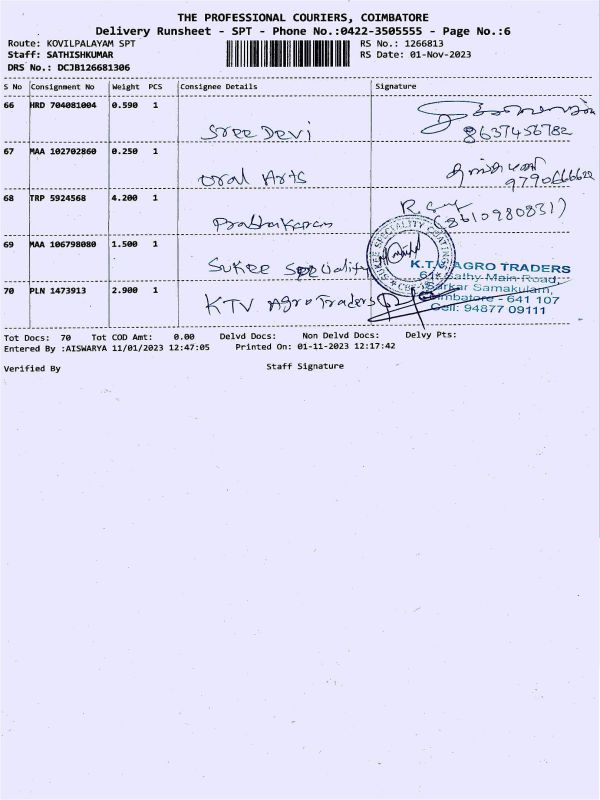 THE PROFESSIONAL COURIERS, COIMBATORE
Delivery Runsheet - SPT - Phone No.:0422-3505555 - Page No.:6
Route: KOVILPALAYAM SPT RS No.: 1266813
Staff: SATHISHKUMAR RS Date: 01-Nov-2023
DRS No.: DCJB126681306
S No Consignment No Weight PCS Consignee Details Signature
66 HRD 704081004 0.590 1
Sree Devi 8637456782
67 MAA 102702860 0.250 1
Oral Arts 9790666622
68 TRP 5924568 4.200 1
Prabhakaran (8610980831)
69 MAA 106798080 1.500 1
SPECIALITY COATINGS
Sukee Speciality
K.T.V AGRO TRADERS
Sathy Main Road,
Sarkar Samakulam,
Coimbatore - 641 107
Cell: 94877 09111
70 PLN 1473913 2.900 1
KTV Agro Traders
Tot Docs: 70 Tot COD Amt: 0.00 Delvd Docs: Non Delvd Docs: Delvy Pts:
Entered By :AISWARYA 11/01/2023 12:47:05 Printed On: 01-11-2023 12:17:42
Verified By Staff Signature